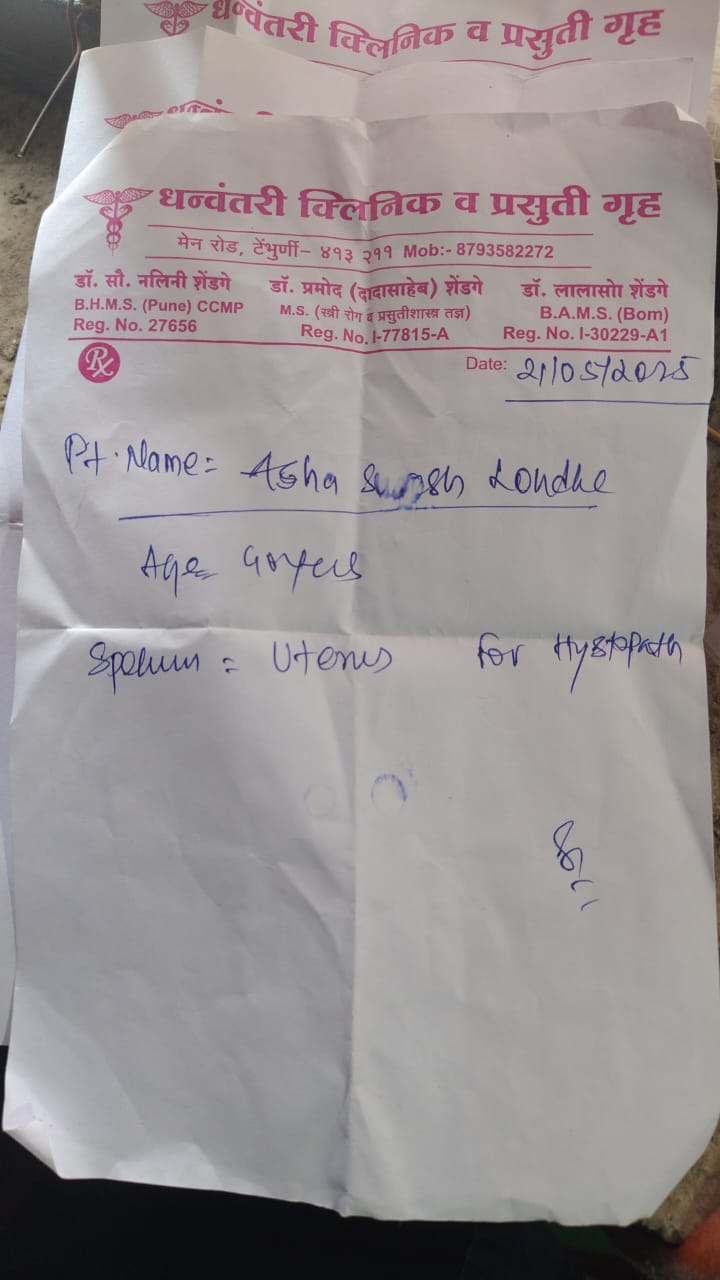 धन्वंतरी क्लिनिक व प्रसुती गृह
धन्वंतरी क्लिनिक व प्रसुती गृह
मेन रोड, टेंभुर्णी– ४१३ २११ Mob:- 8793582272
डॉ. सौ. नलिनी शेंडगे
B.H.M.S. (Pune) CCMP
Reg. No. 27656
डॉ. प्रमोद (दादासाहेब) शेंडगे
M.S. (स्त्री रोग व प्रसुतीशास्त्र तज्ञ)
Reg. No. I-77815-A
डॉ. लालासो शेंडगे
B.A.M.S. (Bom)
Reg. No. I-30229-A1
Rx
Date: 21/05/2025
Pt. Name = Asha Londhe
Age =
= Uterus for Hystopath